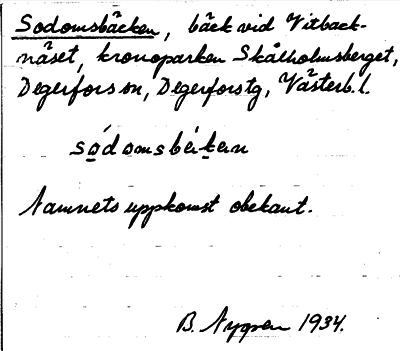 Sodomsbäcken, bäck vid Vitback-
näset, kronoparken Skålholmsberget,
Degerfors sn, Degerforstg, Västerb. l.
sódomsbékən
Namnets uppkomst obekant.
B. Nygren 1934.